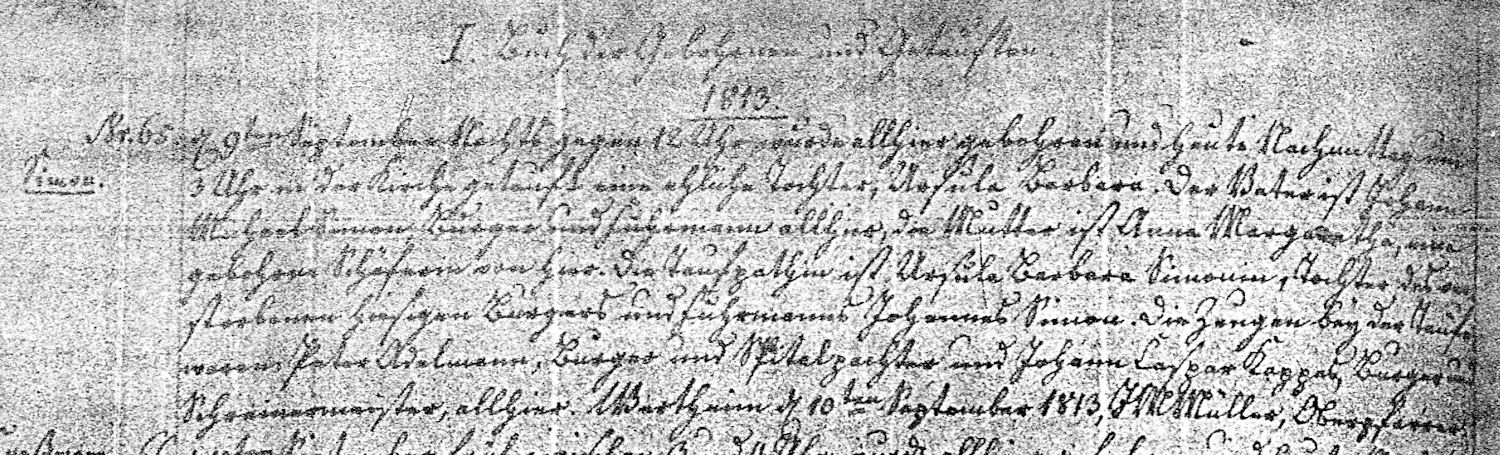 I. Buch der Gebohrenen und Getauften.
1813.
Nr. 65. d. 9ten September Nachts gegen 12 Uhr wurde allhier gebohren und heute Nachmittag um
Simon.
3 Uhr in der Kirche getauft eine ehliche Tochter, Ursula Barbara. Der Vater ist Johann
Michael Simon Bürger und Fuhrmann allhier, die Mutter ist Anna Margaretha, eine
gebohrne Schäferin von hier. Die Taufpathin ist Ursula Barbara Simonin, Tochter des ver
storbenen hiesigen Bürgers und Fuhrmanns Johannes Simon. Die Zeugen bey der Taufe
waren Peter Adelmann, Bürger und Spitalpachter und Johann Caspar Kappes, Burger und
Schreinermeister, allhier. Wertheim d. 10ten September 1813, J M Müller, Oberpfarrer.